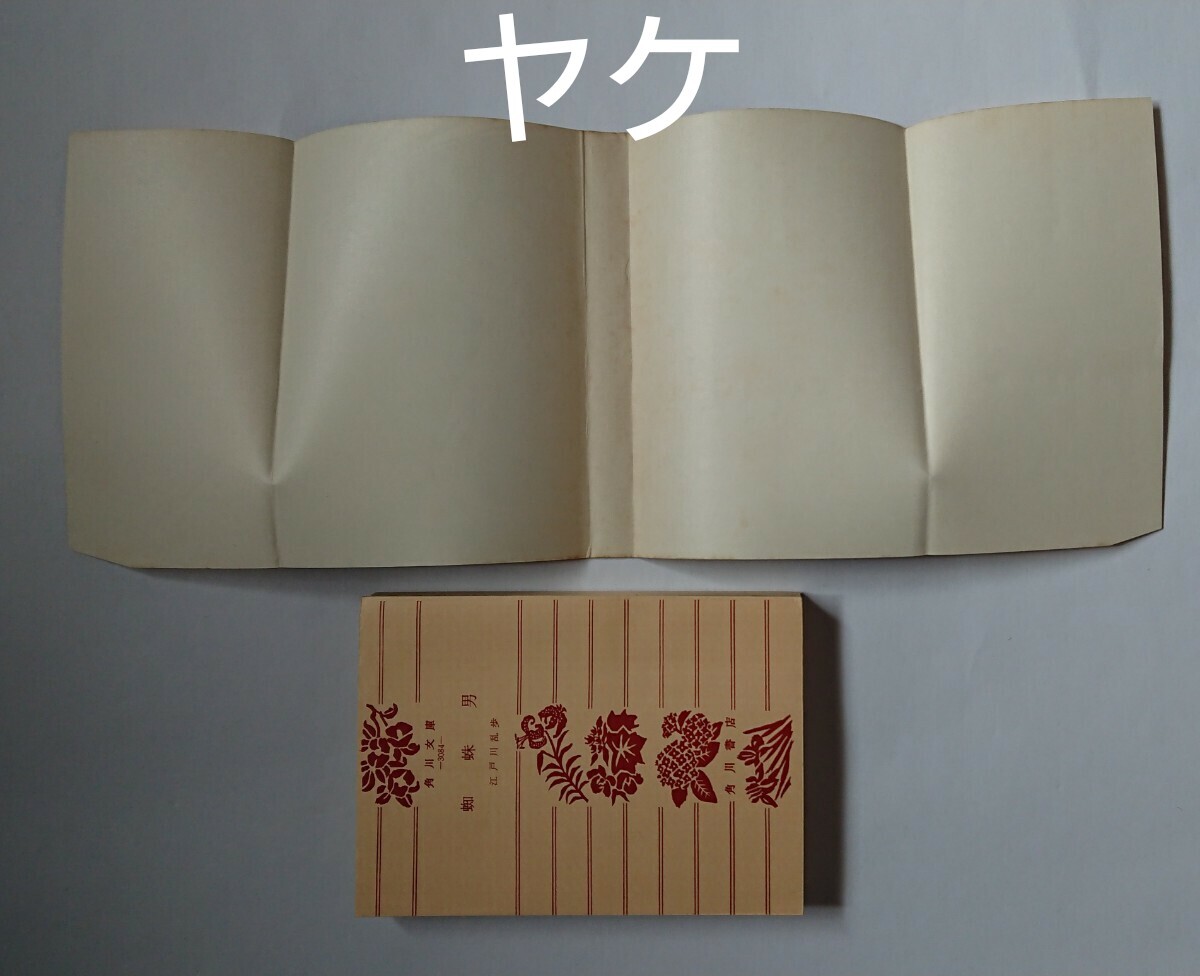 ヤケ
角川文庫
—3084—
蜘蛛男
江戸川乱歩
角川書店